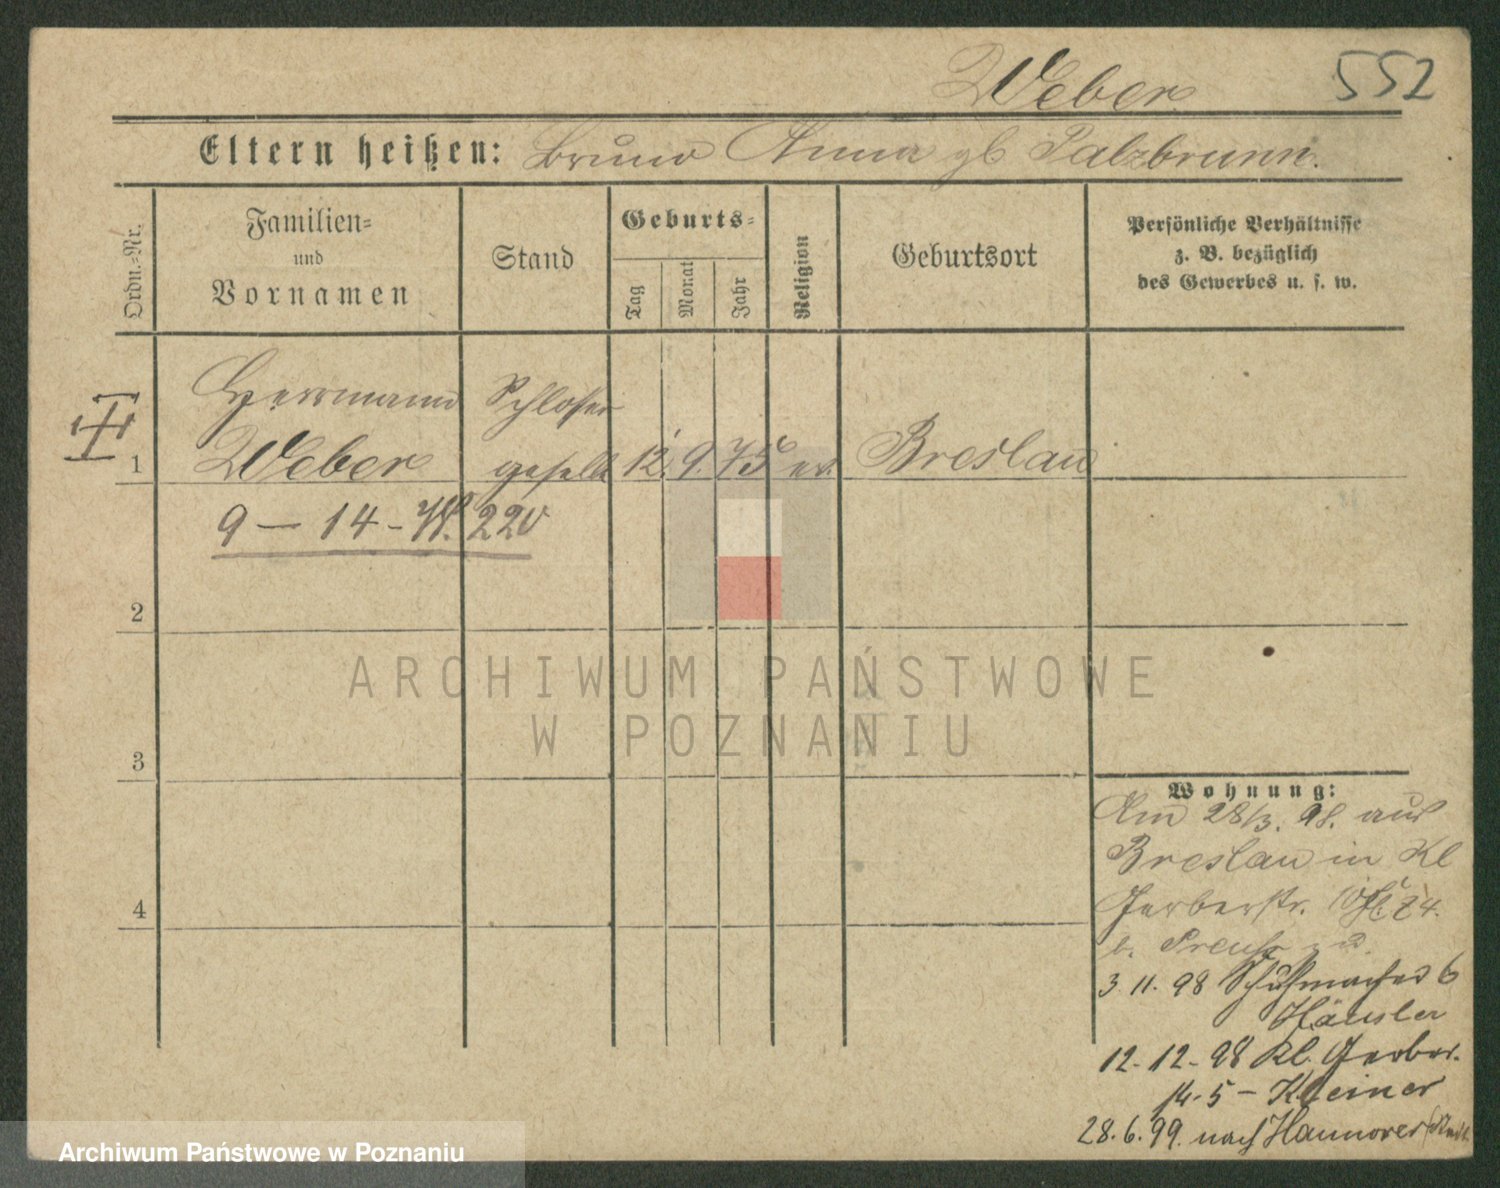 Weber 552
Eltern heißen: Bruno Anna gb Salzbrunn.
Ordn.-Nr.
Familien-
und
Vornamen
Stand
Geburts-
Tag
Monat
Jahr
Religion
Geburtsort
Persönliche Verhältnisse
z. B. bezüglich
des Gewerbes u. s. w.
Herrmann Schlosser
1 Weber geselle 12. 9. 75 ev. Breslau
9 — 14 - 220
2
ARCHIWUM PAŃSTWOWE
W POZNANIU
3
Wohnung:
Am 28/3. 98. aus
Breslau in Kl
4 Gerberstr. 10
b. Preuß
3. 11. 98 Schuhmacher 6
Häusler
12. 12. 98 Kl. Gerber.
14.5 – Kleiner
28.6.99. nach Hannover
Archiwum Państwowe w Poznaniu